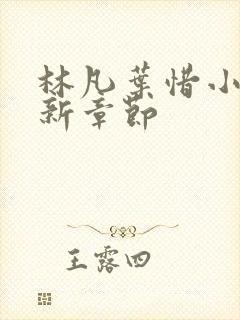 林凡葉惜小
新章節
王露四